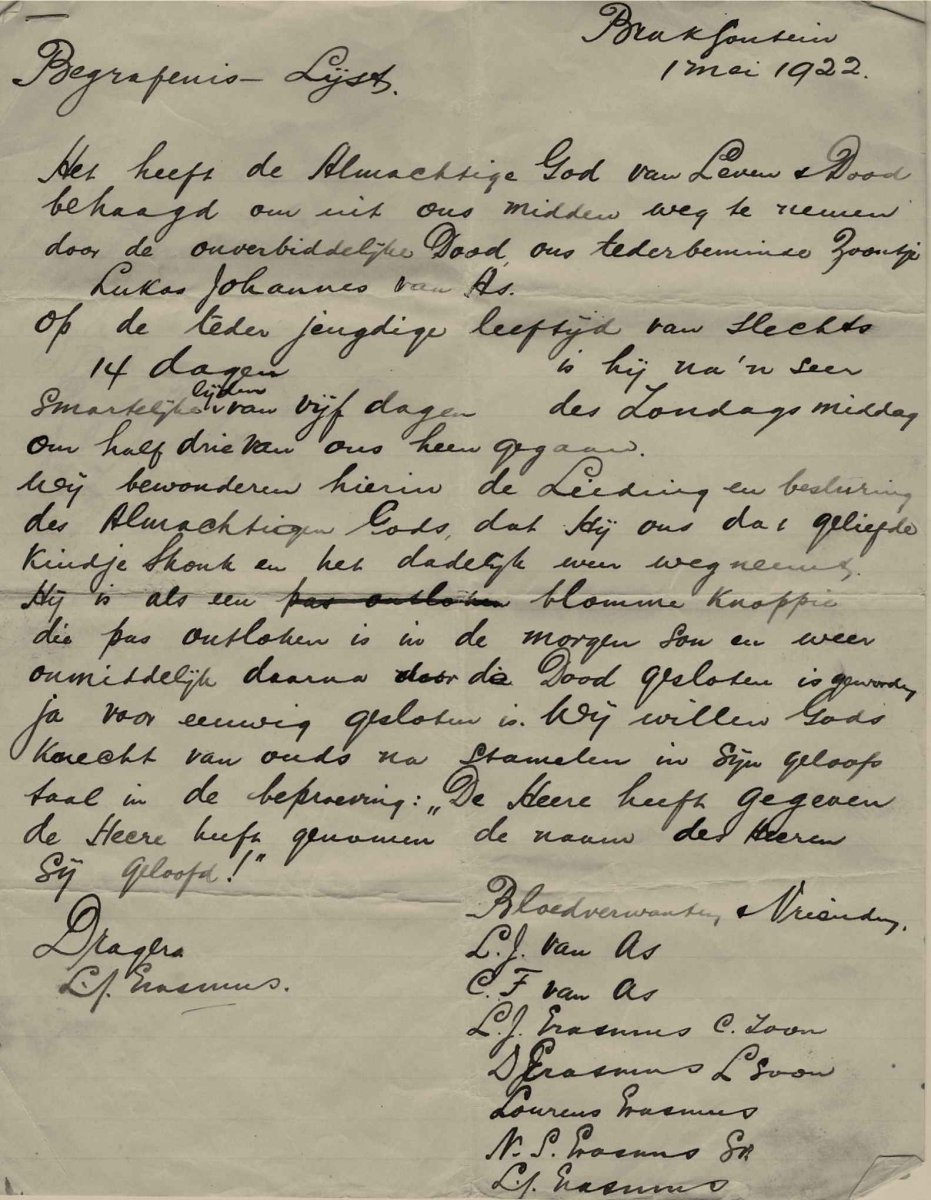 Brakfontein
1 Mei 1922.
Begrafenis- Lijst.
Het heeft de Almachtige God van Leven & Dood
behaagd om uit ons midden weg te nemen
door de onverbiddelijke Dood, ons tederbeminde Zoontje
Lukas Johannes van As.
Op de teder jeugdige leeftijd van slechts
14 dagen is hij na 'n seer
smartelijke lijden van vijf dagen des Zondags middag
om half drie van ons heen gegaan.
Wij bewonderen hierin de Leiding en besturing
des Almachtigen Gods, dat Hij ons dat geliefde
Kindje Skonk en het dadelijk weer weg neemt.
Hij is als een pas ontloken blomme Knoppie
die pas ontloken is in de morgen son en weer
onmiddelijk daarna door die Dood gesloten is geworden
ja voor eeuwig gesloten is. Wij willen Gods
Knecht van ouds na stamelen in Sijn geloofs
taal in de beproeving: „De Heere heeft gegeven
de Heere heeft genomen de naam des Heeren
Sij geloofd!"
Bloedverwanten & Vrienden.
Dragers
L.J. van As
L.J. Erasmus.
C. F van As
L.J. Erasmus C. Zoon
D J Erasmus L Soon
Lourens Erasmus
N. S. Erasmus Sr.
L.J. Erasmus